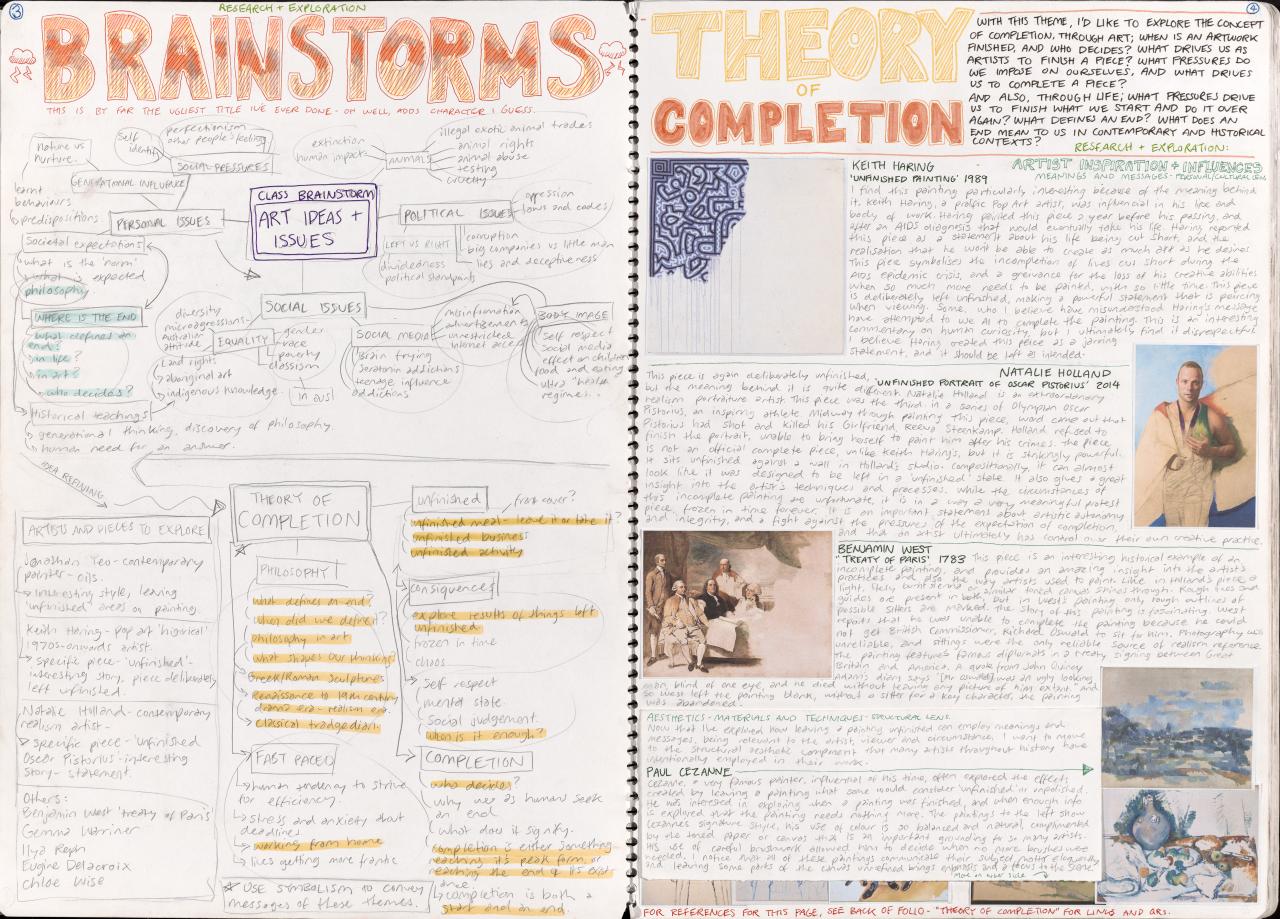 3
RESEARCH + EXPLORATION
BRAINSTORMS
THIS IS BY FAR THE UGLIEST TITLE I'VE EVER DONE - OH WELL, ADDS CHARACTER I GUESS...
Nature vs
nurture.
Self
identity
perfectionism
other people's feelings
SOCIAL PRESSURES
GENERATIONAL INFLUENCE
learnt
behaviours
predispositions
PERSONAL ISSUES
Societal expectations
what is the 'norm'
what is expected
philosophy
WHERE IS THE END
what defines an
end?
in life?
in art?
who decides?
Historical teachings
generational thinking, discovery of philosophy.
human need for an answer.
CLASS BRAINSTORM
ART IDEAS +
ISSUES
extinction
human impact
ANIMALS
illegal exotic animal trades
animal rights
animal abuse
testing
cruelty
POLITICAL ISSUES
oppression
laws and codes
LEFT VS RIGHT
dividedness
political standpoints
corruption
big companies vs little man
lies and deceptiveness
SOCIAL ISSUES
diversity
microaggressions
Australian
attitude
EQUALITY
gender
race
poverty
classism
Land rights
aboriginal art
indigenous knowledge
in aus!
SOCIAL MEDIA
misinformation
advertisements
unrestricted
internet access
Brain frying
seratonin addictions
teenage influence
addictions
BODY IMAGE
Self respect
Social media
effect on children
food and eating
ultra 'health'
regimes.
IDEA REFINING
ARTISTS AND PIECES TO EXPLORE
Jonathan Yeo - contemporary
painter - oils.
Interesting style, leaving
'unfinished' areas on painting.
Keith Haring - pop art
1970s-onwards artist.
specific piece - 'unfinished' -
interesting story, piece deliberately
left unfinished.
Natalie Holland - contemporary
realism artist -
specific piece - 'Unfinished
Oscar Pistorius - interesting
story - statement.
Others:
Benjamin West 'treaty of Paris'
Gemma Warriner
Ilya Repin
Eugine Delacroix
Chloe Wise
THEORY OF
COMPLETION
PHILOSOPHY
what defines an end?
when did we define it?
philosophy in art
what shapes our thinking
Greek/Roman Sculptures
Renaissance to 19th century
drama era - realism era.
classical tradgedian
FAST PACED
human tendency to strive
for efficiency.
stress and anxiety about
deadlines
working from home
lives getting more frantic
USE SYMBOLISM TO CONVEY
MESSAGES OF THESE THEMES.
unfinished
front cover?
unfinished meal - leave it or take it?
unfinished business
unfinished activity
consiquences
explore results of things left
unfinished
frozen in time
chaos
Self respect
mental state
Social judgement.
when is it enough?
COMPLETION
who decides?
why we as humans seek
an end
what does it signify.
completion is either something
reaching it's peak form, or
reaching the end of its exist
ance.
completion is both a
start and an end.
4
THEORY
OF
COMPLETION
WITH THIS THEME, I'D LIKE TO EXPLORE THE CONCEPT
OF COMPLETION, THROUGH ART; WHEN IS AN ARTWORK
FINISHED, AND WHO DECIDES? WHAT DRIVES US AS
ARTISTS TO FINISH A PIECE? WHAT PRESSURES DO
WE IMPOSE ON OURSELVES, AND WHAT DRIVES
US TO COMPLETE A PIECE?
AND ALSO, THROUGH LIFE; WHAT PRESSURES DRIVE
US TO FINISH WHAT WE START AND DO IT OVER
AGAIN? WHAT DEFINES AN END? WHAT DOES AN
END MEAN TO US IN CONTEMPORARY AND HISTORICAL
CONTEXTS?
RESEARCH + EXPLORATION:
ARTIST INSPIRATION + INFLUENCES
MEANINGS AND MESSAGES - PERSONAL/CULTURAL LENS
KEITH HARING
'UNFINISHED PAINTING' 1989
I find this painting particularly interesting because of the meaning behind
it. Keith Haring, a prolific Pop Art artist, was influencial in his line and
body of work. Haring painted this piece a year before his passing, and
after an AIDS diagnosis that would eventually take his life. Haring reported
this piece as a statement about his life being cut short, and the
realisation that he won't be able to create as much art as he desires.
This piece symbolises the incompletion of lives cut short during the
AIDS epidemic crisis, and a grievance for the loss of his creative abilities
when so much more needs to be painted, with so little time. This piece
is deliberately left unfinished, making a powerful statement that is piercing
when viewing. Some, who I believe have misunderstood Haring's message
have attempted to use AI to complete the painting. This is an interesting
commentary on human curiosity, but I ultimately find it disrespectful
I believe Haring created this piece as a jarring
statement, and it should be left as intended.
NATALIE HOLLAND
'UNFINISHED PORTRAIT OF OSCAR PISTORIUS' 2014
This piece is again deliberately unfinished,
but the meaning behind it is quite different. Natalie Holland is an extraordinary
realism portraiture artist. This piece was the third in a series of Olympian Oscar
Pistorius, an inspiring athlete. Midway through painting this piece, word came out that
Pistorius had shot and killed his Girlfriend, Reeva Steenkamp. Holland refused to
finish the portrait, unable to bring herself to paint him after his crimes. The piece
is not an official complete piece, unlike Keith Haring's, but it is strikingly powerful.
It sits unfinished against a wall in Holland's studio. Compositionally, it can almost
look like it was designed to be left in a 'unfinished' state. It also gives a great
insight into the artist's techniques and processes. While the circumstances of
this incomplete painting are unfortunate, it is in a way a very meaningful protest
piece, frozen in time forever. It is an important statement about artistic autonomy
and integrity, and a fight against the pressures of the expectation of completion,
and that an artist ultimately has control over their own creative practice.
BENJAMIN WEST
'TREATY OF PARIS' 1783
This piece is an interesting historical example of an
incomplete painting, and provides an amazing insight into the artist's
practices and also the way artists used to paint. Like in Holland's piece, a
light, fleshy similar toned canvas shines through. Rough lines and
guides are present in both, but in West's painting, only rough outlines of
possible sitters are marked. The story of this painting is fascinating. West
reports that he was unable to complete the painting because he could
not get British Commissioner, Richard Oswald to sit for him. Photography was
unreliable, and sittings were the only reliable source of realism reference.
The painting features famous diplomats in a treaty signing between Great
Britain and America. A quote from John Quincy
Adam's diary says '[Mr Oswald] was an ugly looking
man, blind of one eye, and he died without leaving any picture of him extant.' And
so West left the painting blank, without a sitter for a key character, the painting
was abandoned.
AESTHETICS - MATERIALS AND TECHNIQUES - STRUCTURAL LENS
Now that I've explored how leaving a painting unfinished can employ meanings and
messages, being relevant to the artist, viewer and circumstance, I want to move
to the structural aesthetic component that many artists throughout history have
intentionally employed in their work.
PAUL CEZANNE
Cezanne, a very famous painter, influential of his time, often explored the effects
created by leaving a painting what some would consider 'unfinished' or unpolished.
He was interested in exploring when a painting was finished, and when enough info
is explored that the painting needs nothing more. The paintings to the left show
Cezanne's signature style, his use of colour is so balanced and natural, complimented
by the toned paper or canvas that is an important grounding for so many artists.
His use of careful brushwork allowed him to decide when no more brushes were
needed. I notice that all of these paintings communicate their subject matter eloquently
and leaving some parts of the canvas unrefined brings emphasis and a focus to the scene.
more on over side
FOR REFERENCES FOR THIS PAGE, SEE BACK OF FOLIO - "THEORY OF COMPLETION" FOR LINKS AND QRS.